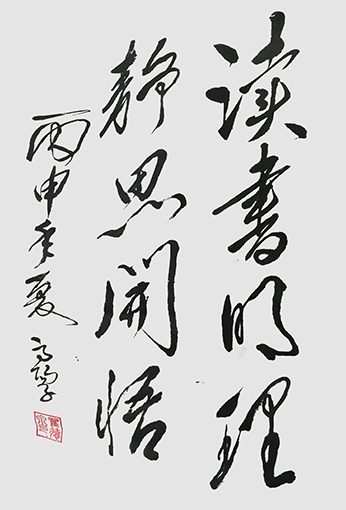 读书明理
静思開悟
丙申年夏